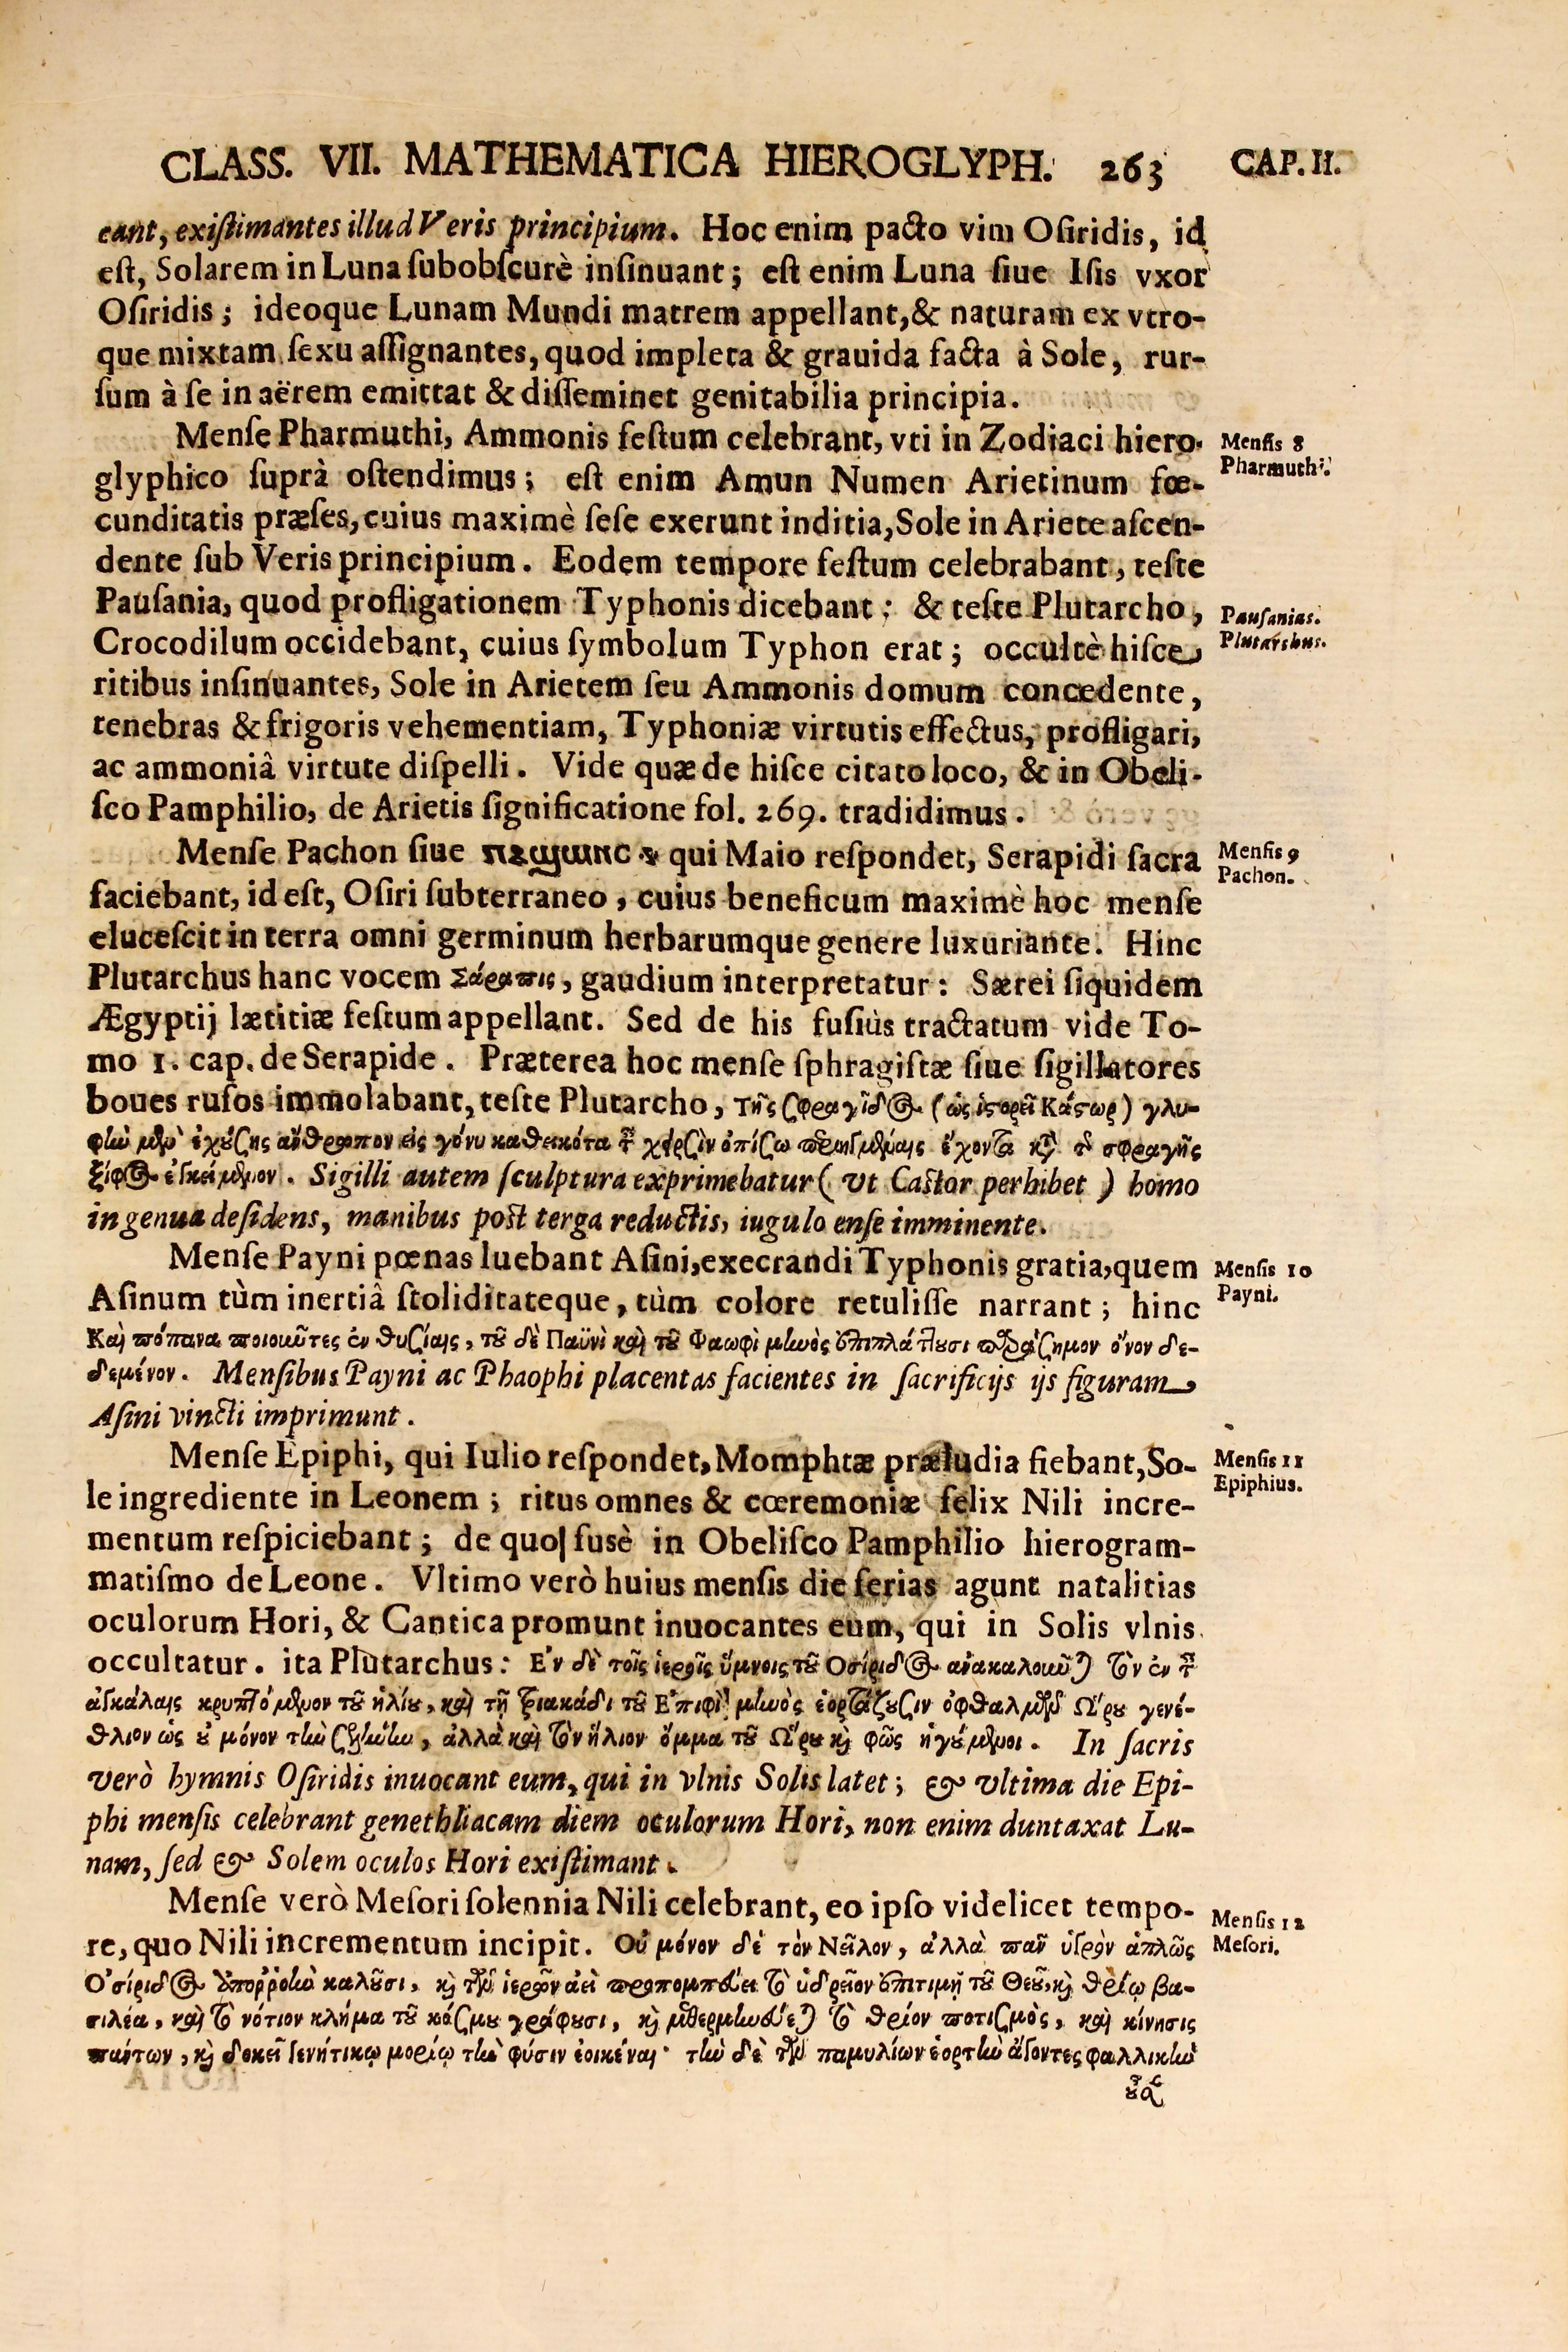 CLASS. VII. MATHEMATICA HIEROGLYPH. 263 CAP. II.
cant, exiſtimantes illud Veris principium. Hoc enim pacto vim Oſiridis, id
eſt, Solarem in Luna ſubobſcurè inſinuant; eſt enim Luna ſiue Iſis vxor
Oſiridis; ideoque Lunam Mundi matrem appellant, & naturam ex vtro-
que mixtam ſexu aſſignantes, quod impleta & grauida facta à Sole, rur-
ſum à ſe in aërem emittat & diſſeminet genitabilia principia.
Menſe Pharmuthi, Ammonis feſtum celebrant, vti in Zodiaci hiero-
glyphico ſuprà oſtendimus; eſt enim Amun Numen Arietinum fœ-
cunditatis præſes, cuius maximè ſeſe exerunt inditia, Sole in Ariete aſcen-
dente ſub Veris principium. Eodem tempore feſtum celebrabant, teſte
Pauſania, quod profligationem Typhonis dicebant; & teſte Plutarcho,
Crocodilum occidebant, cuius ſymbolum Typhon erat; occultè hiſce
ritibus inſinuantes, Sole in Arietem ſeu Ammonis domum concedente,
tenebras & frigoris vehementiam, Typhoniæ virtutis effectus, profligari,
ac ammoniâ virtute diſpelli. Vide quæ de hiſce citato loco, & in Obeli-
ſco Pamphilio, de Arietis ſignificatione fol. 269. tradidimus.
Mensis 8
Pharmuthi.
Pauſanias.
Plutarchus.
Menſe Pachon ſiue ⲡⲁϣⲱⲛⲥ qui Maio reſpondet, Serapidi ſacra
faciebant, id eſt, Oſiri ſubterraneo, cuius beneficum maximè hoc menſe
eluceſcit in terra omni germinum herbarumque genere luxuriante. Hinc
Plutarchus hanc vocem Σάραπις, gaudium interpretatur: Særei ſiquidem
Ægyptij lætitiæ feſtum appellant. Sed de his fuſiùs tractatum vide To-
mo 1. cap. de Serapide. Præterea hoc menſe ſphragiſtæ ſiue ſigillatores
boues rufos immolabant, teſte Plutarcho, τῆς σφραγῖδος (ὡς ἱστορεῖ Κάστωρ) γλυ-
φὴν μὲν ἐχούσης ἄνθρωπον εἰς γόνυ καθεικότα ταῖς χερσὶν ὀπίσω περιηγμέναις ἔχοντα κατὰ τ σφραγῆς
ξίφος ἐγκείμενον. Sigilli autem ſculptura exprimebatur (vt Caſtor perhibet) homo
in genua deſidens, manibus poſt terga reductis, iugulo enſe imminente.
Mensis 9
Pachon.
Menſe Payni pœnas luebant Aſini, execrandi Typhonis gratia, quem
Aſinum tùm inertiâ ſtoliditateque, tùm colore retuliſſe narrant; hinc
Καὶ πόπανα ποιοῦντες ἐν θυσίαις, τοῦ δὲ Παϋνὶ καὶ τοῦ Φαωφὶ μηνὸς ἐπιπλάττουσι παράσημον ὄνον δε-
δεμένον. Menſibus Payni ac Phaophi placentas facientes in ſacrificijs ijs figuram
Aſini vincti imprimunt.
Mensis 10
Payni.
Menſe Epiphi, qui Iulio reſpondet, Momphtæ præludia fiebant, So-
le ingrediente in Leonem; ritus omnes & cœremoniæ felix Nili incre-
mentum reſpiciebant; de quo fusè in Obeliſco Pamphilio hierogram-
matiſmo de Leone. Vltimo verò huius menſis die ferias agunt natalitias
oculorum Hori, & Cantica promunt inuocantes eum, qui in Solis vlnis
occultatur. ita Plutarchus: Ἐν δὲ τοῖς ἱεροῖς ὕμνοις τοῦ Ὀσίριδος ἀνακαλοῦνται τὸν ἐν ταῖς
ἀγκάλαις κρυπτόμενον τοῦ ἡλίου, καὶ τῇ τριακάδι τοῦ Ἐπιφὶ μηνὸς ἑορτάζουσιν ὀφθαλμῶν Ὥρου γενέ-
θλιον ὡς οὐ μόνον τὴν σελήνην, ἀλλὰ καὶ τὸν ἥλιον ὄμμα τοῦ Ὥρου καὶ φῶς ἡγούμενοι. In ſacris
verò hymnis Oſiridis inuocant eum, qui in vlnis Solis latet; & vltima die Epi-
phi menſis celebrant genethliacam diem oculorum Hori, non enim duntaxat Lu-
nam, ſed & Solem oculos Hori exiſtimant.
Mensis 11
Epiphius.
Menſe verò Meſori ſolennia Nili celebrant, eo ipſo videlicet tempo-
re, quo Nili incrementum incipit. Οὐ μόνον δὲ τὸν Νεῖλον, ἀλλὰ πᾶν ὑγρὸν ἁπλῶς
Ὀσίριδος ἀπορροὴν καλοῦσι, καὶ τῶν ἱερῶν ἀεὶ προπομπεύει τὸ ὑδρεῖον ἐπιτιμῇ τοῦ Θεοῦ, καὶ θρίῳ βα-
σιλέα, καὶ τὸ νότιον κλήμα τοῦ κόσμου γράφουσι, καὶ μεθερμηνεύεται τὸ θρίον ποτισμὸς, καὶ κίνησις
πάντων, καὶ δοκεῖ γενήτικῳ μορίῳ τὴν φύσιν ἐοικέναι· τὴν δὲ τῶν παμυλίων ἑορτὴν ἄγοντες φαλλικὴν
οὖσ
Mensis 12
Mesori.